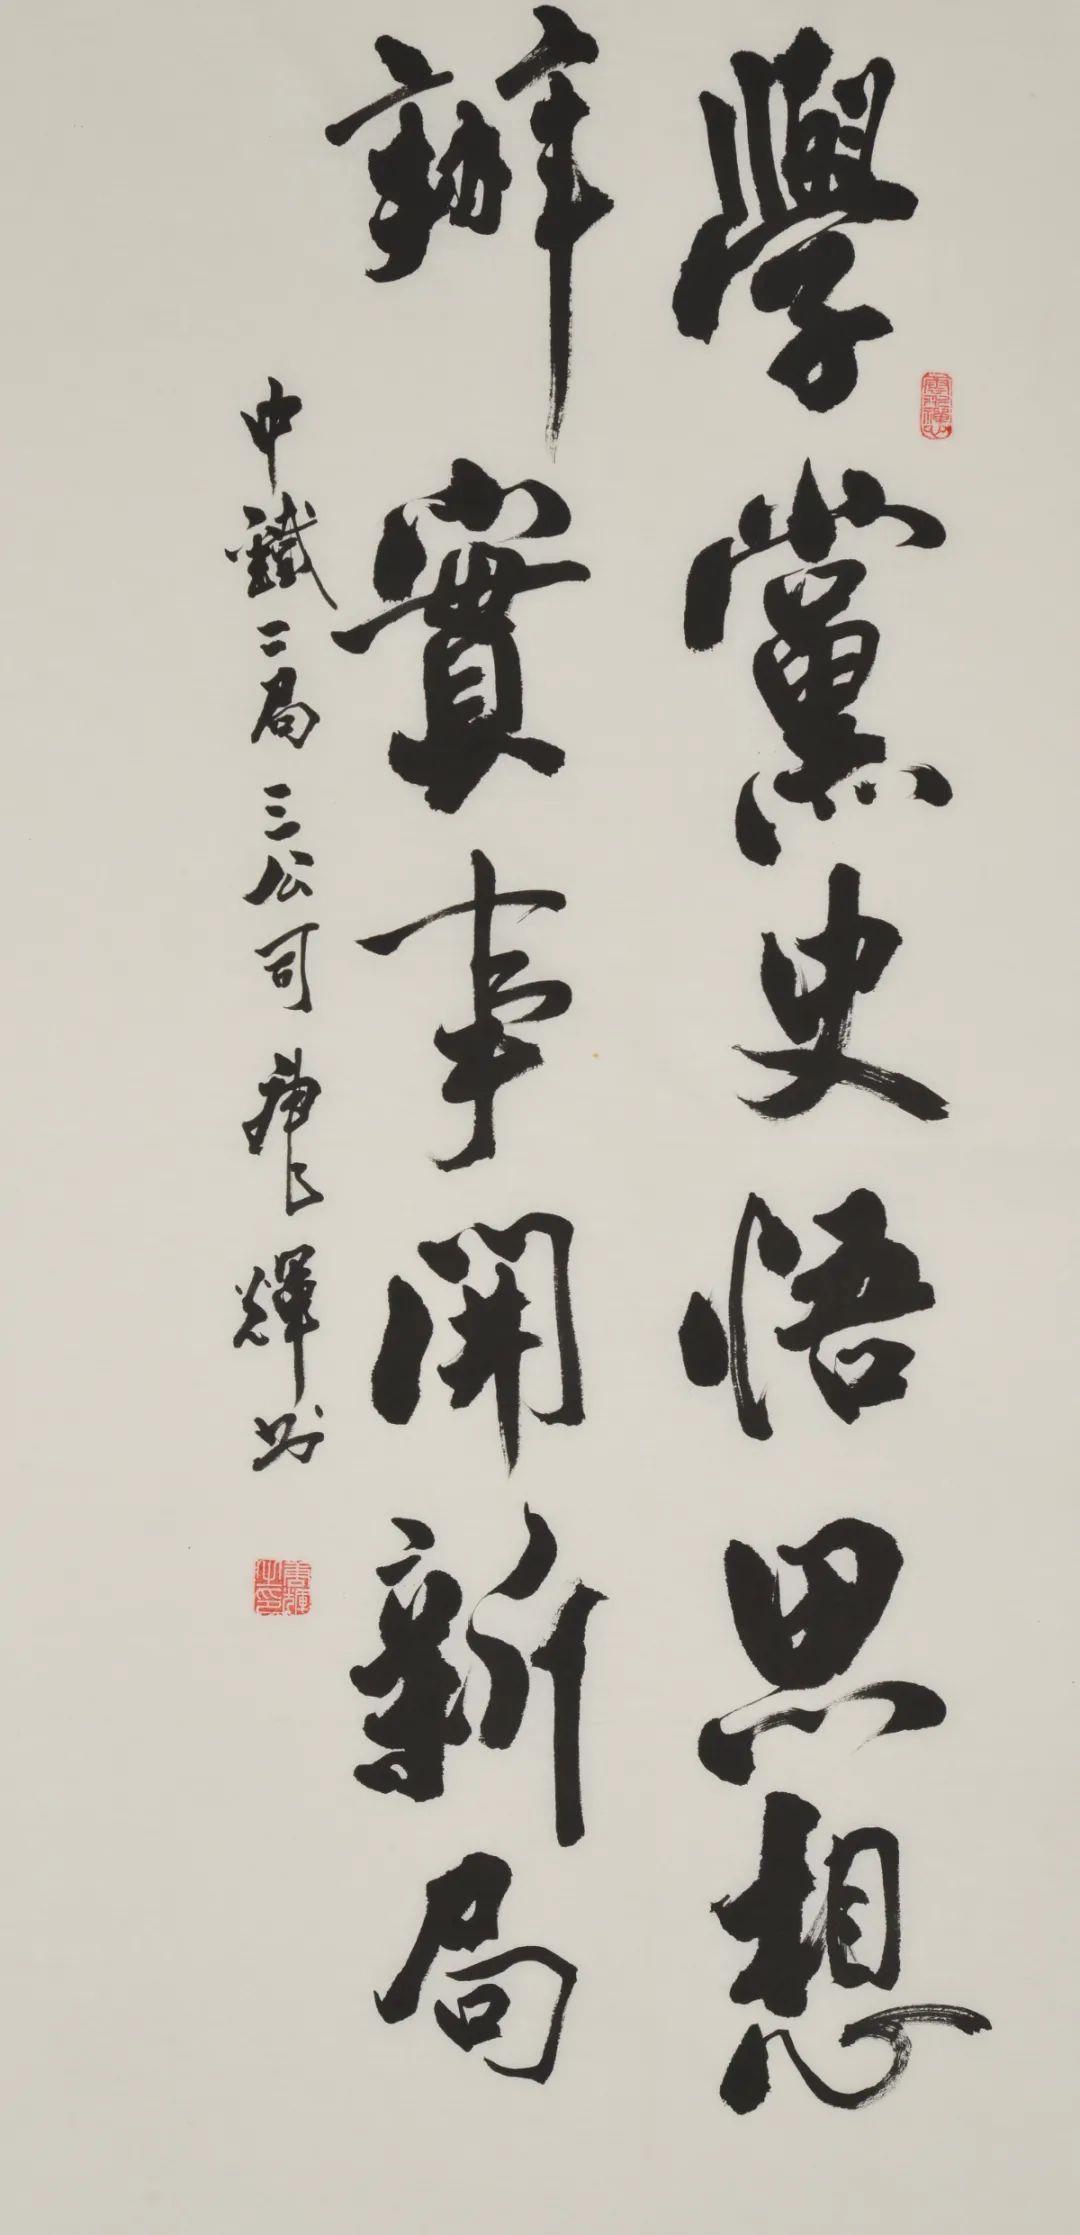 學黨史悟思想
辦實事開新局
中鐵二局三公司 輝书
唐輝之印